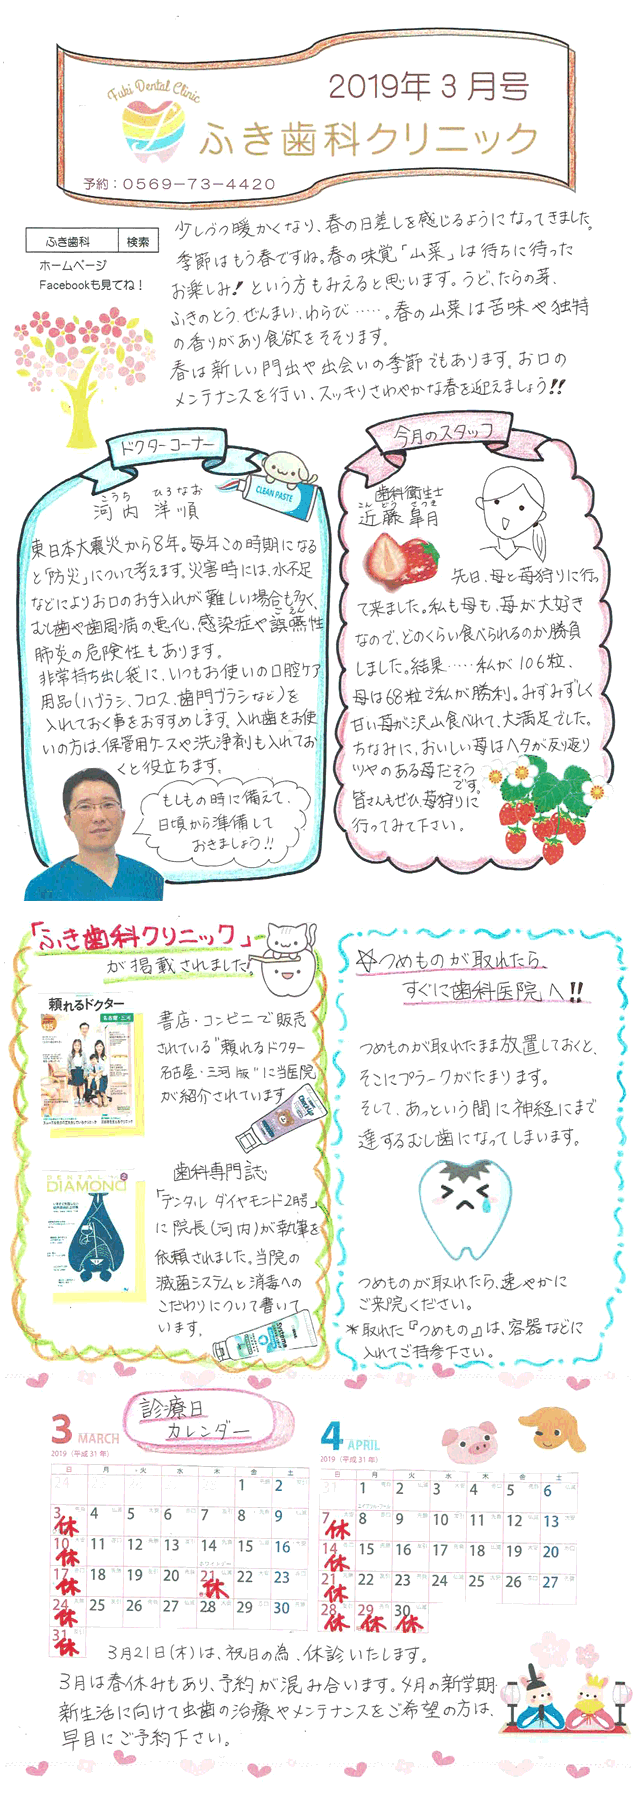 Fuki Dental Clinic
2019年3月号
ふき歯科クリニック
予約：0569-73-4420
ふき歯科 検索
ホームページ
Facebookも見てね！
少しづつ暖かくなり、春の日差しを感じるようになってきました。
季節はもう春ですね。春の味覚「山菜」は待ちに待った
お楽しみ！という方もみえると思います。うど、たらの芽、
ふきのとう、ぜんまい、わらび……。春の山菜は苦味や独特
の香りがあり食欲をそそります。
春は新しい門出や出会いの季節でもあります。お口の
メンテナンスを行い、スッキリさわやかな春を迎えましょう!!
ドクターコーナー
CLEAN PASTE
こうち ひろなお
河内 洋順
東日本大震災から8年。毎年この時期になる
と「防災」について考えます。災害時には、水不足
などによりお口のお手入れが難しい場合も多く、
むし歯や歯周病の悪化、感染症や誤嚥性
肺炎の危険性もあります。
非常持ち出し袋に、いつもお使いの口腔ケア
用品(ハブラシ、フロス、歯間ブラシなど)を
入れておく事をおすすめします。入れ歯をお使
いの方は、保管用ケースや洗浄剤も入れてお
くと役立ちます。
もしもの時に備えて、
日頃から準備して
おきましょう!!
今月のスタッフ
歯科衛生士
こんどう さつき
近藤 皐月
先日、母と苺狩りに行っ
て来ました。私も母も、苺が大好き
なので、どのくらい食べられるのか勝負
しました。結果……私が106粒、
母は68粒で私が勝利。みずみずしく
甘い苺が沢山食べれて、大満足でした。
ちなみに、おいしい苺はヘタが反り返り
ツヤのある苺だそう
です。
皆さんもぜひ、苺狩りに
行ってみて下さい。
「ふき歯科クリニック」
が掲載されました!
頼れるドクター
書店・コンビニで販売
されている"頼れるドクター
名古屋・三河版"に当医院
が紹介されています
DENTAL DIAMOND
歯科専門誌
「デンタルダイヤモンド2月号」
に院長(河内)が執筆を
依頼されました。当院の
滅菌システムと消毒への
こだわりについて書いて
います。
Systema
☆つめものが取れたら、
すぐに歯科医院へ!!
つめものが取れたまま放置しておくと、
そこにプラークがたまります。
そして、あっという間に神経にまで
達するむし歯になってしまいます。
つめものが取れたら、速やかに
ご来院ください。
*取れた『つめもの』は、容器などに
入れてご持参下さい。
診療日
カレンダー
3 MARCH
2019（平成31年）
日 月 火 水 木 金 土
1 2
3 休 4 5 6 7 8 9
10 休 11 12 13 14 15 16
17 休 18 19 20 21 休 22 23
24 休 25 26 27 28 29 30
31 休
4 APRIL
2019（平成31年）
日 月 火 水 木 金 土
1 2 3 4 5 6
7 休 8 9 10 11 12 13
14 休 15 16 17 18 19 20
21 休 22 23 24 25 26 27
28 休 29 休 30 休
3月21日(木)は、祝日の為、休診いたします。
3月は春休みもあり、予約が混み合います。4月の新学期・
新生活に向けて虫歯の治療やメンテナンスをご希望の方は、
早目にご予約下さい。